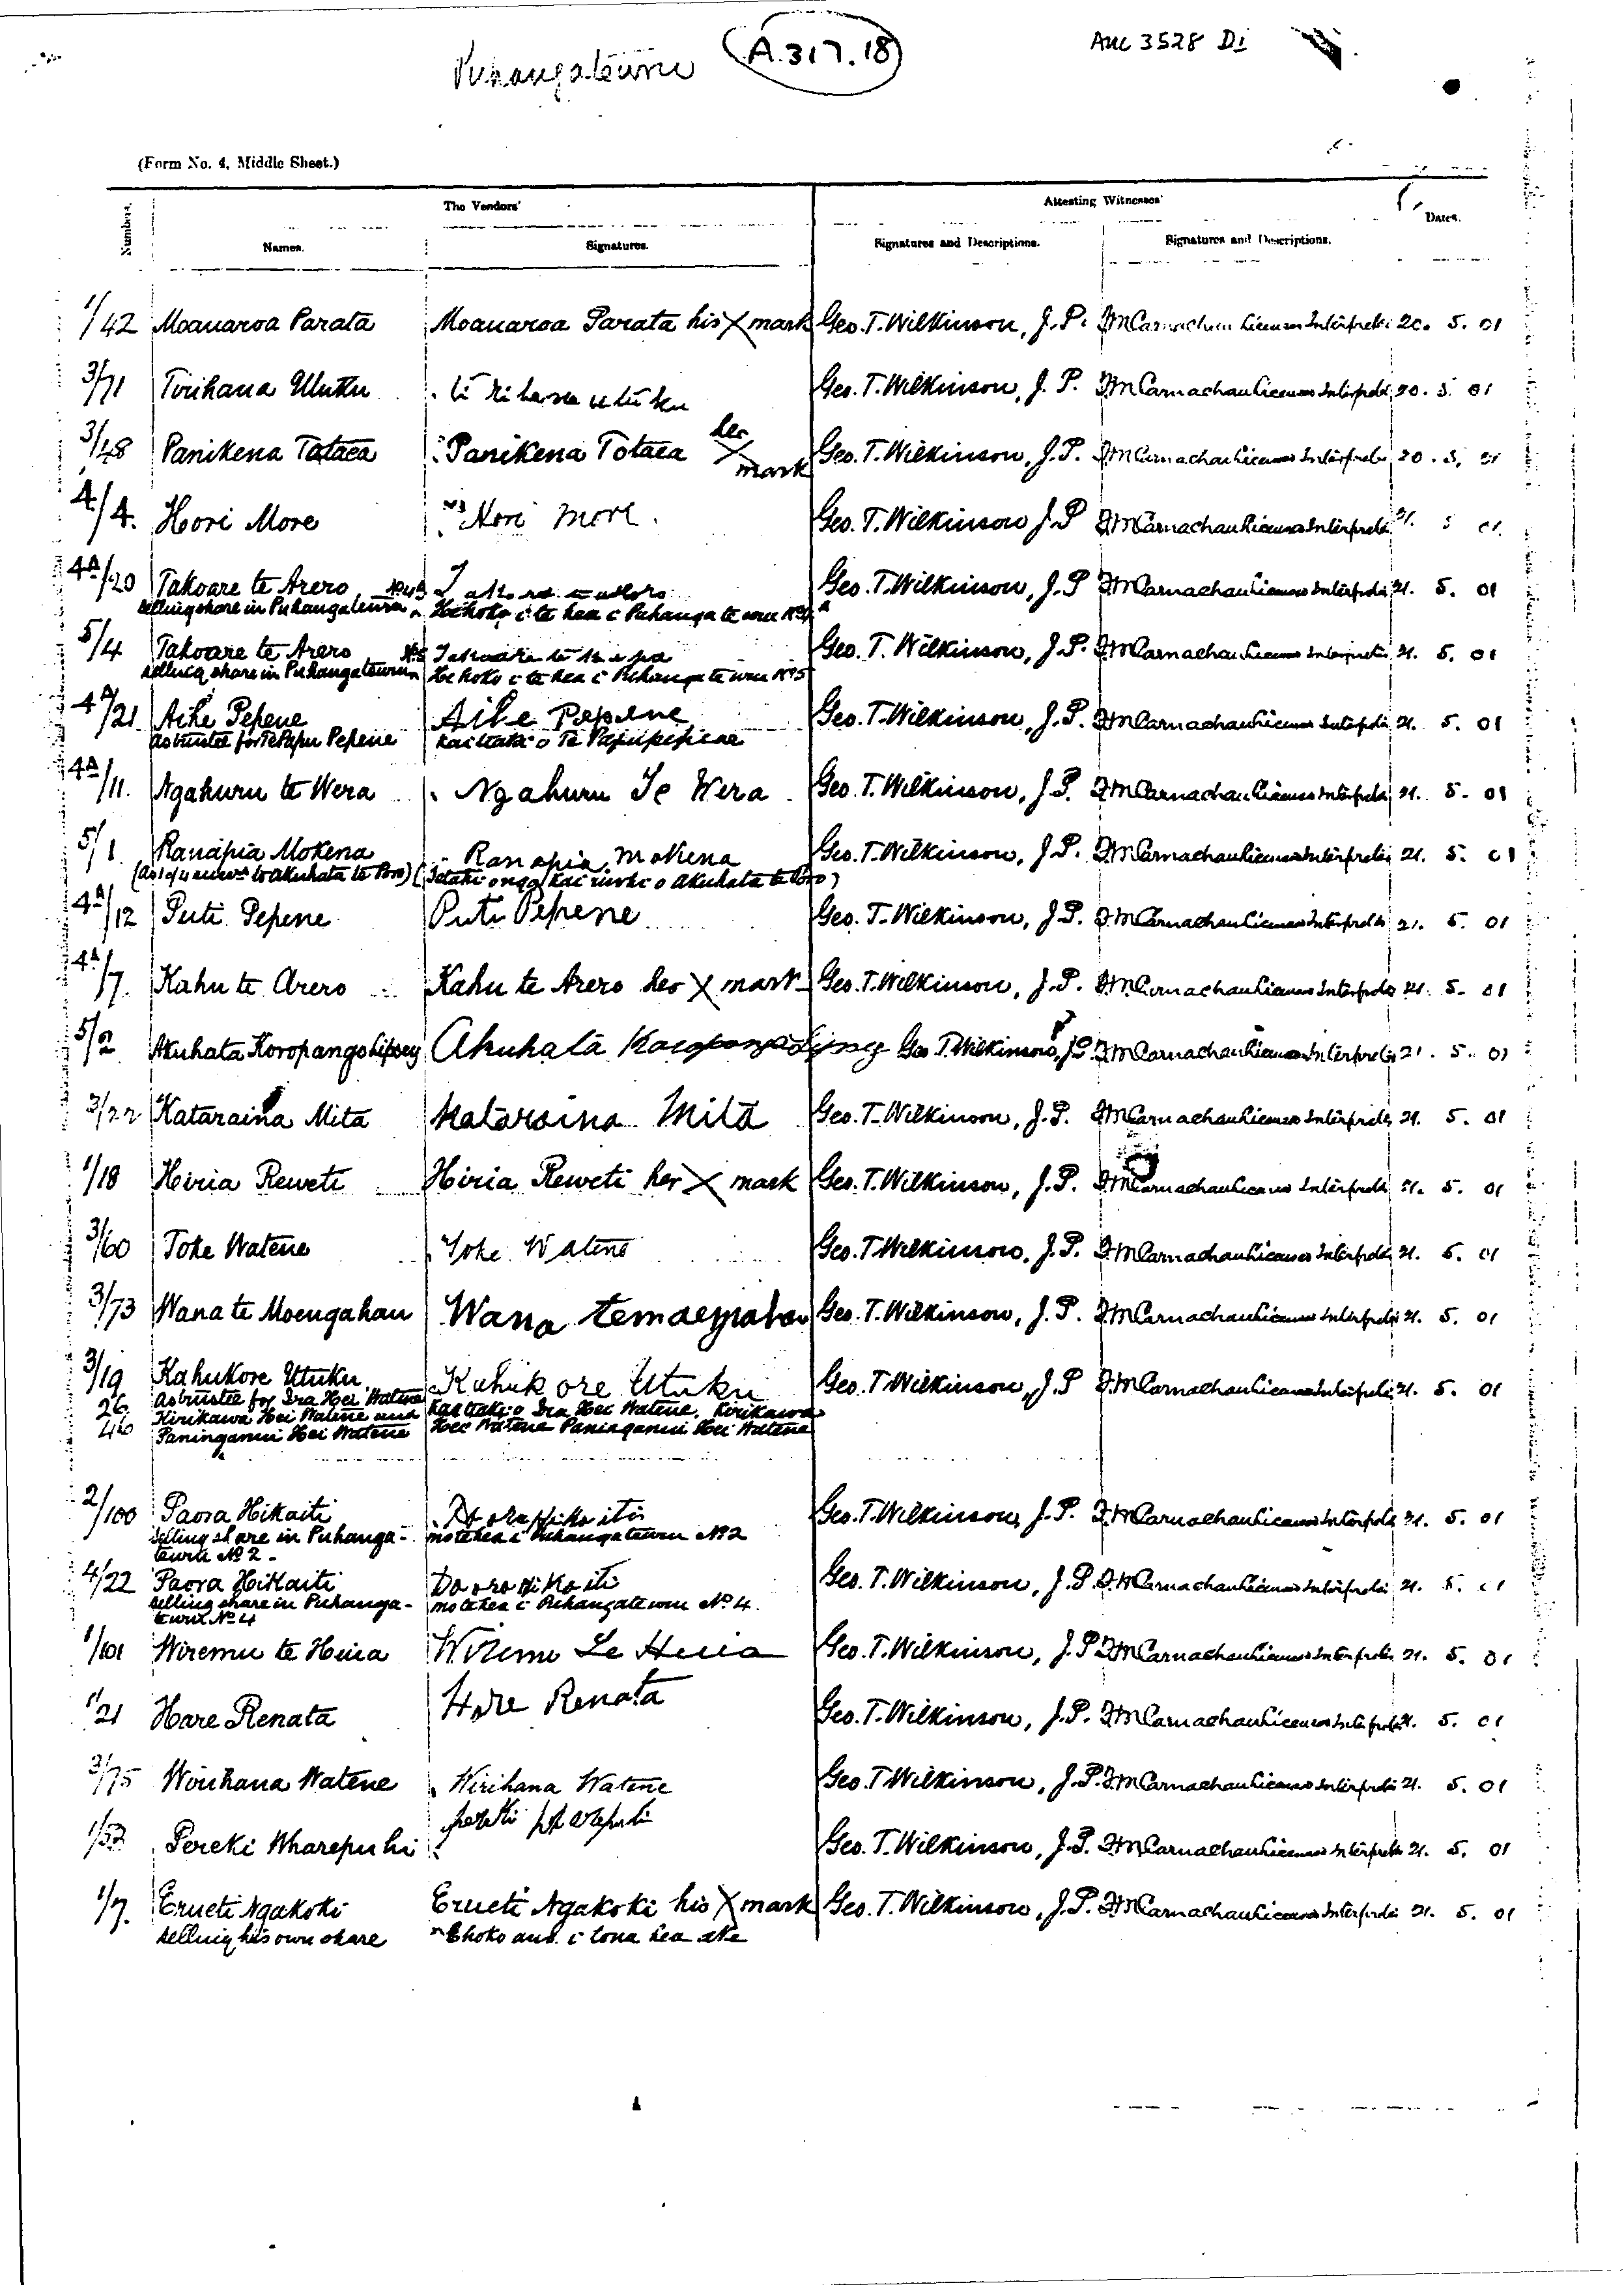 Puhangateuru
A.317.18
Auc 3528 Di
(Form No. 4, Middle Sheet.)
Numbers.
The Vendors'
Attesting Witnesses'
Dates.
Names.
Signatures.
Signatures and Descriptions.
Signatures and Descriptions.
1/42 Moanaroa Parata Moanaroa Parata his X mark Geo. T. Wilkinson, J.P. Licensed Interpreter 20. 5. 01
3/71 Tirihana Utuku Tirihana utuku Geo. T. Wilkinson, J.P. Licensed Interpreter 20. 5. 01
3/48 Panikena Totaea Panikena Totaea her X mark Geo. T. Wilkinson, J.P. Licensed Interpreter 20. 5. 01
4/4. Hori More Hori More. Geo. T. Wilkinson J.P Licensed Interpreter 21. 5 01.
4A/20 Takoare te Arero Geo. T. Wilkinson, J.P Licensed Interpreter 21. 5. 01
selling share in Puhangateuru Hehoko i te hea i Puhanga te uru No 4A
5/4 Takoare te Arero Geo. T. Wilkinson, J.P. Licensed Interpreter 21. 5. 01
selling share in Puhangateuru No 5 He hoko i te hea i Puhanga te uru No 5
4A/21 Aihe Pepene Aihe Pepene Geo. T. Wilkinson, J.P. Licensed Interpreter 21. 5. 01
as trustee for Te Papu Pepene Kaitiaki o Te Papu Pepene
4A/11. Ngahuru te Wera Ngahuru Te Wera Geo. T. Wilkinson, J.P. Licensed Interpreter 21. 5. 01
5/1 Ranapia Mokena Ranapia Mokena Geo. T. Wilkinson, J.P. Licensed Interpreter 21. 5. 01
4A/12 Puti Pepene Puti Pepene Geo. T. Wilkinson, J.P. Licensed Interpreter 21. 5. 01
4A/7. Kahu te Arero Kahu te Arero her X mark Geo. T. Wilkinson, J.P. Licensed Interpreter 21. 5. 01
5/2 Akuhata Koropango Lipsey Akuhata Geo. T. Wilkinson, J.P. Licensed Interpreter 21. 5. 01
3/22 Kataraina Mita Kataraina Mita Geo. T. Wilkinson, J.P. Licensed Interpreter 21. 5. 01
1/18 Hiria Reweti Hiria Reweti her X mark Geo. T. Wilkinson, J.P. Licensed Interpreter 21. 5. 01
3/60 Toke Watene Toke Watene Geo. T. Wilkinson, J.P. Licensed Interpreter 21. 5. 01
3/73 Wana te Moengahau Wana Geo. T. Wilkinson, J.P. Licensed Interpreter 21. 5. 01
3/19 Kahukore Utuku Kahukore Utuku Geo. T. Wilkinson, J.P Licensed Interpreter 21. 5. 01
26 As trustee for Ira Hei Watene Kaitiaki o Ira Hei Watene, Kirikawa
46 Kirikawa Hei Watene and Hei Watene Paningamui Hei Watene
Paningamui Hei Watene
2/100 Paora Hikaiti Geo. T. Wilkinson, J.P. Licensed Interpreter 21. 5. 01
selling share in Puhanga- mo te hea i Puhangateuru No 2
teuru No 2 -
4/22 Paora Hikaiti Geo. T. Wilkinson, J.P. Licensed Interpreter 21. 5. 01
selling share in Puhanga- mo te hea i Puhangateuru No 4.
teuru No 4
1/101 Wiremu te Huia Wiremu Te Huia Geo. T. Wilkinson, J.P Licensed Interpreter 21. 5. 01
1/21 Hare Renata Hare Renata Geo. T. Wilkinson, J.P. Licensed Interpreter 21. 5. 01
3/75 Wirihana Watene Wirihana Watene Geo. T. Wilkinson, J.P. Licensed Interpreter 21. 5. 01
Pereki Wharepuhi Geo. T. Wilkinson, J.P. Licensed Interpreter 21. 5. 01
1/7. Erueti Ngakoki Erueti Ngakoki his X mark Geo. T. Wilkinson, J.P. Licensed Interpreter 21. 5. 01
selling his own share E hoko ana i tona hea ake